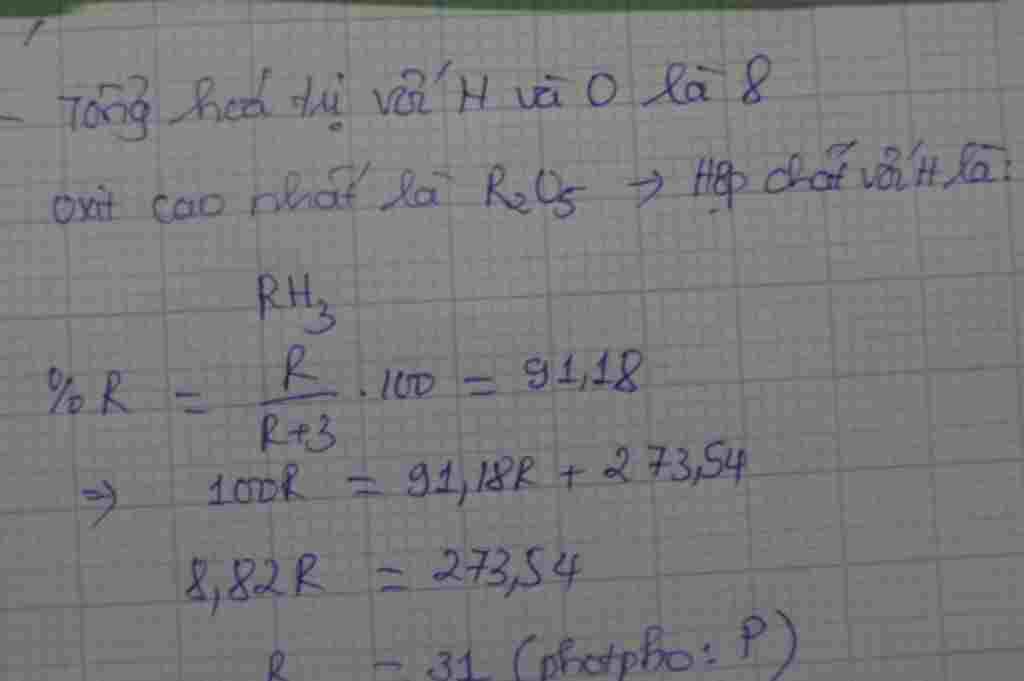 - Tổng hoá trị với H và O là 8
oxit cao nhất là R₂O₅ → Hợp chất với H là:
RH₃
%R = R/(R+3) . 100 = 91,18
⇒ 100R = 91,18R + 273,54
8,82R = 273,54
R = 31 (photpho: P)